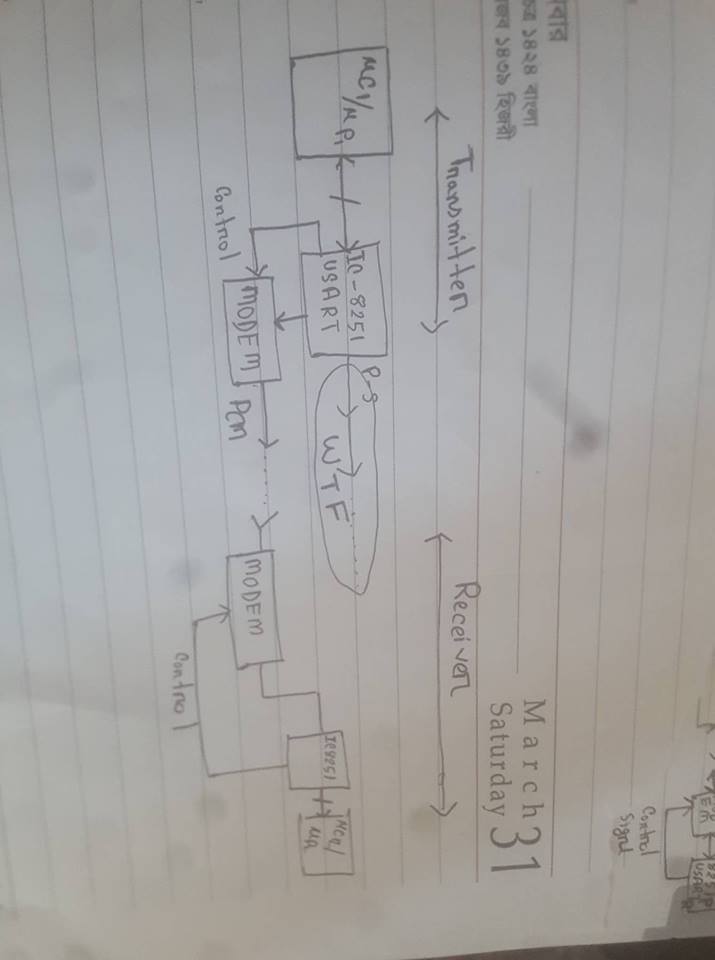 EM
8251
USART
Control
Signal
বার
১৪২৪ বাংলা
১৪৩৯ হিজরী
March 31
Saturday
Transmitter
Receiver
MC1/MP1
IC-8251
USART
P-S
WTF
MODEM
Control
PCM
MODEM
IC8251
MC2/
Control